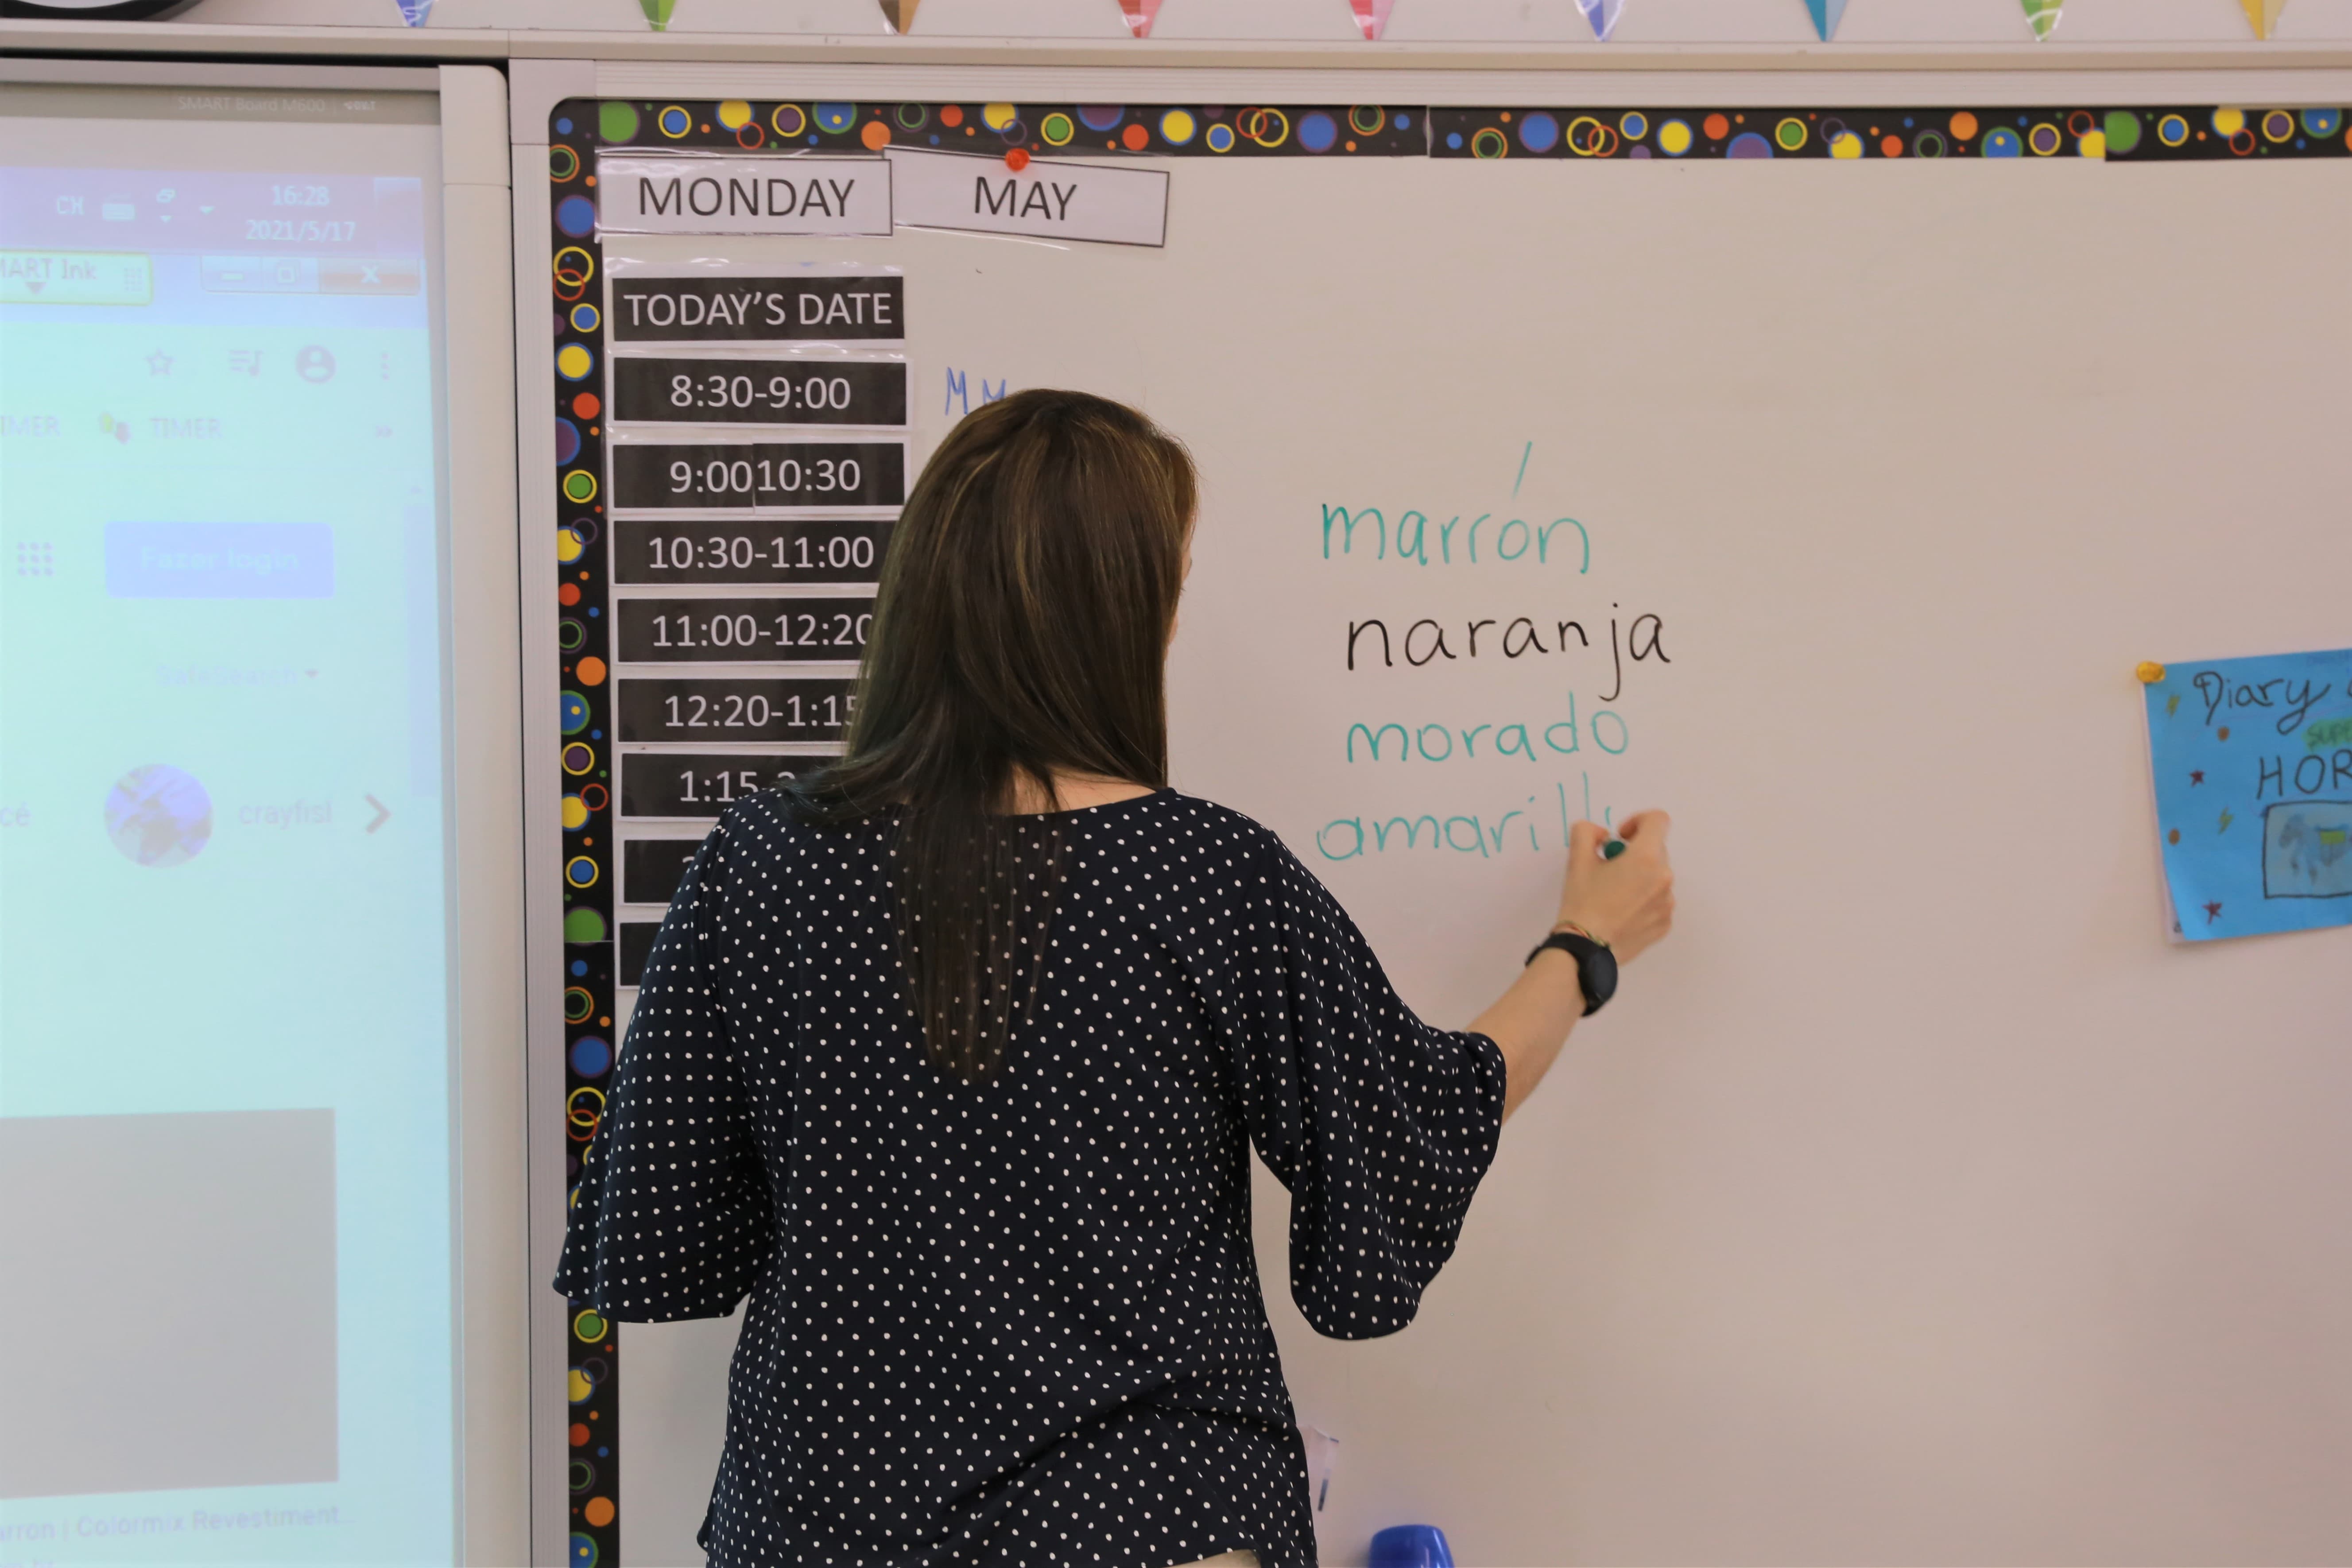 SMART Board M600
CH
16:28
2021/5/17
MART Ink
IMER
TIMER
Fazer login
SafeSearch
cé
crayfisl
arron | Colormix Revestiment...
MONDAY
MAY
TODAY'S DATE
8:30-9:00
MM
9:00 10:30
10:30-11:00
11:00-12:20
12:20-1:15
1:15-2
marrón
naranja
morado
amarill
Diary
SUPE
HOR